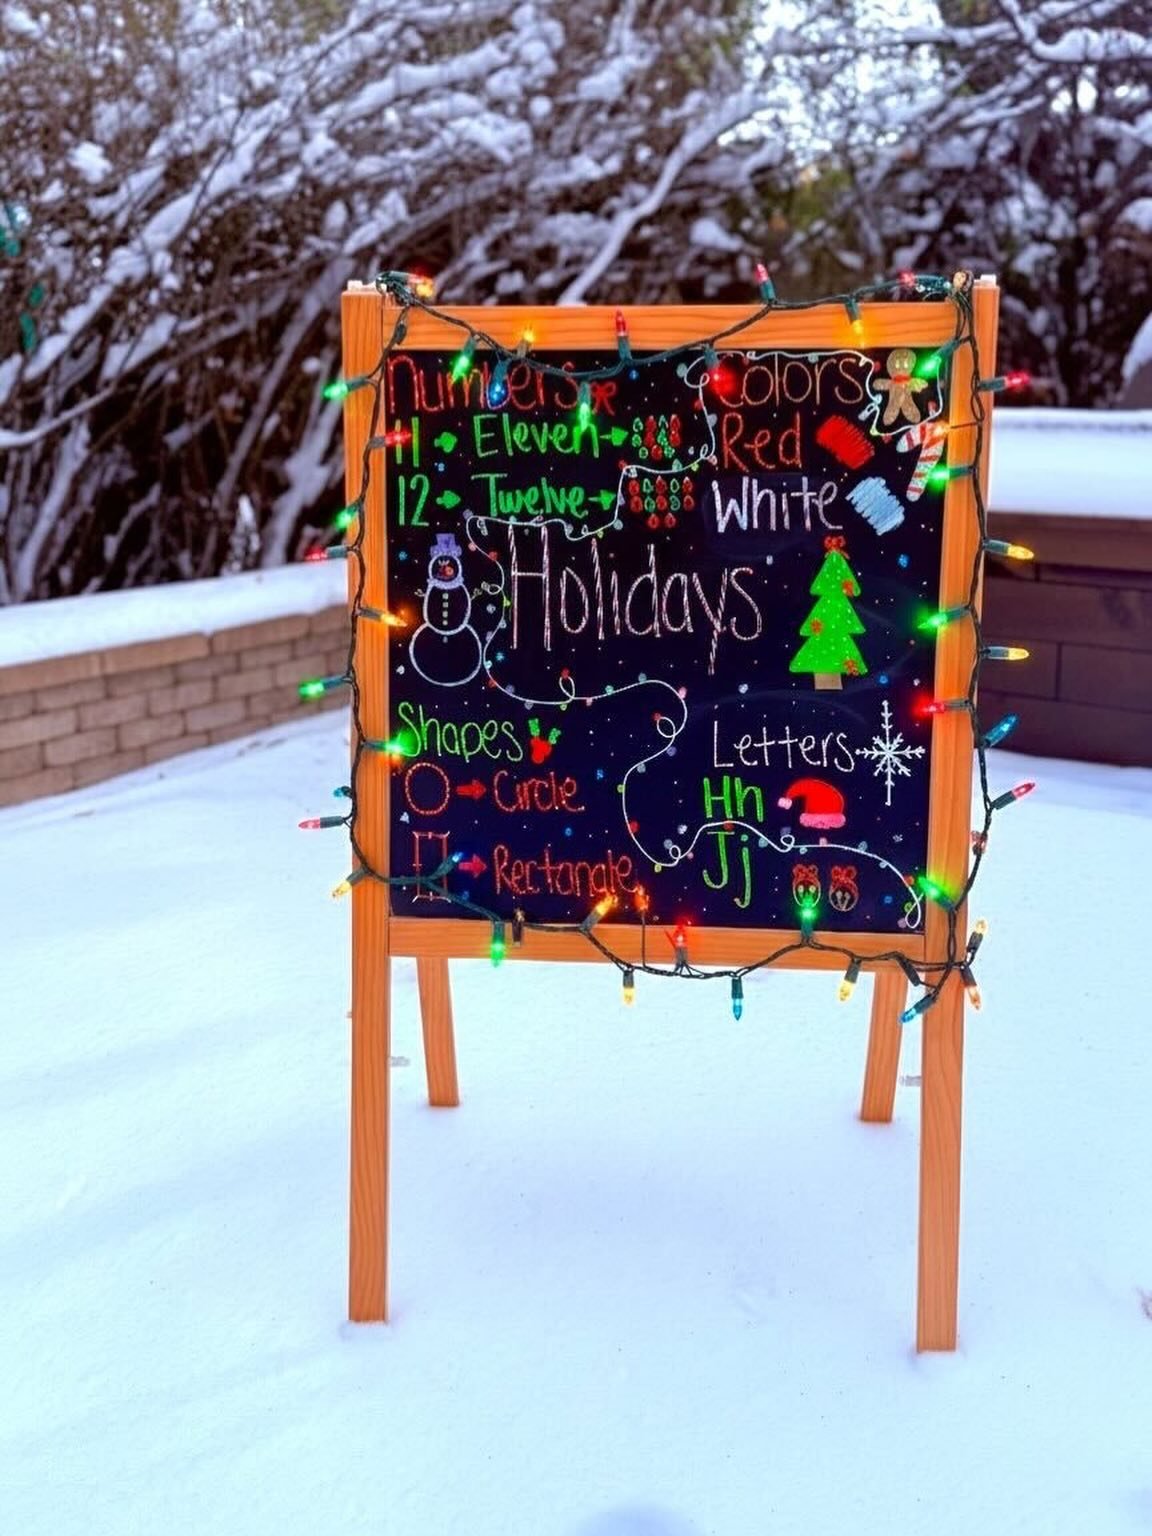 Numbers
11 Eleven
12 Twelve
Colors
Red
White
Holidays
Shapes
Circle
Rectangle
Letters
Hh
Jj